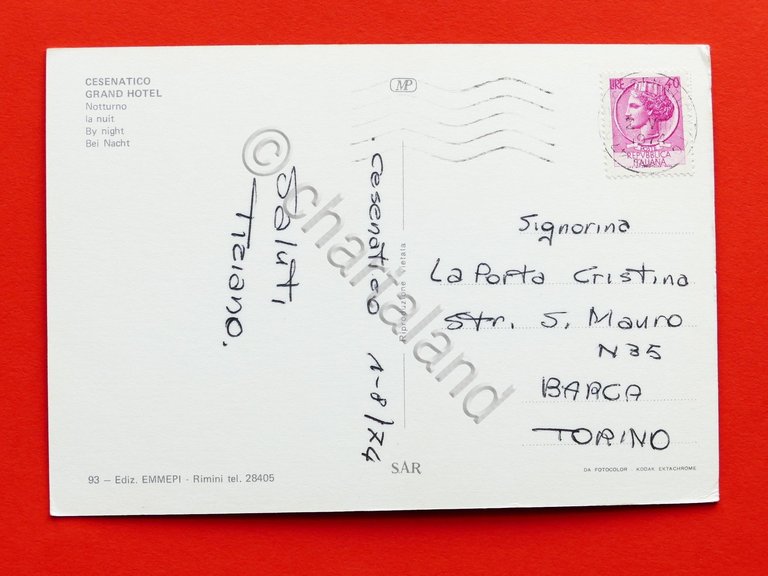 CESENATICO
GRAND HOTEL
Notturno
la nuit
By night
Bei Nacht
MP
LIRE 40
POSTE
REPVBBLICA
ITALIANA
Cesenatico 1-8/74
Saluti
Tiziano.
Riproduzione vietata
Signorina
La Porta Cristina
Str. S. Mauro
N 35
BARCA
TORINO
93 – Ediz. EMMEPI - Rimini tel. 28405
SAR
DA FOTOCOLOR - KODAK EKTACHROME
© chartaland